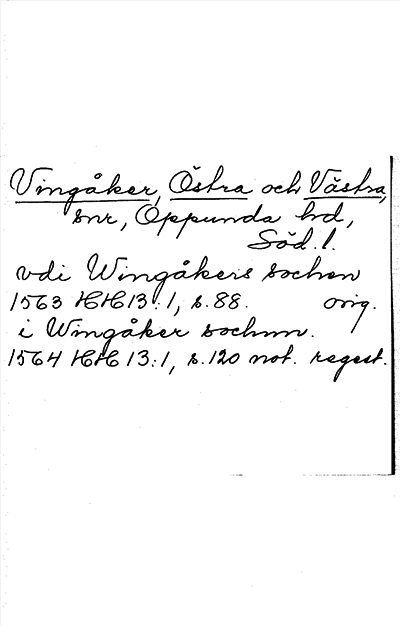 Vingåker, Östra och Västra,
snr, Oppunda hd,
Söd. l.
vdi Wingåkers sochen
1563 HH 13:1, s. 88. orig.
i Wingåker sochnn.
1564 HH 13:1, s. 120 not. regest.